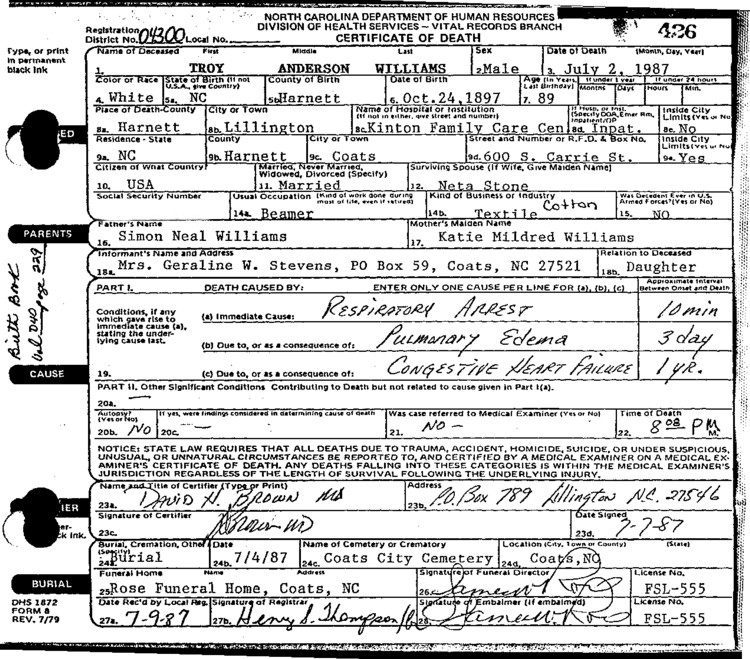 NORTH CAROLINA DEPARTMENT OF HUMAN RESOURCES
DIVISION OF HEALTH SERVICES – VITAL RECORDS BRANCH
CERTIFICATE OF DEATH
Registration District No. 04300 Local No. 426
Type, or print in permanent black ink
Name of Deceased First Middle Last Sex Date of Death (Month, Day, Year)
1. TROY ANDERSON WILLIAMS 2. Male 3. July 2, 1987
Color or Race State of Birth (If not U.S.A., give Country) County of Birth Date of Birth Age (In Years, Last Birthday) If under 1 year Months Days If under 24 hours Hours Min.
4. White 5a. NC 5b. Harnett 6. Oct.24,1897 7. 89
Place of Death-County City or Town Name of Hospital or Institution (If not in either, give street and number) If Hosp. or Inst. (Specify DOA, Emer Rm, Inpatient/OP Inside City Limits (Yes or No
8a. Harnett 8b. Lillington 8c. Kinton Family Care Cen 8d. Inpat. 8e. No
Residence - State County City or Town Street and Number or R.F.D. & Box No. Inside City Limits (Yes or No
9a. NC 9b. Harnett 9c. Coats 9d. 600 S. Carrie St. 9e. Yes
Citizen of What Country? Married, Never Married, Widowed, Divorced (Specify) Surviving Spouse (If Wife, Give Maiden Name)
10. USA 11. Married 12. Neta Stone
Social Security Number Usual Occupation (Kind of work done during most of life, even if retired) Kind of Business or Industry Was Decedent Ever in U.S. Armed Forces? (Yes or No)
14a. Beamer 14b. Textile Cotton 15. NO
PARENTS
Father's Name Mother's Maiden Name
16. Simon Neal Williams 17. Katie Mildred Williams
Informant's Name and Address Relation to Deceased
18a. Mrs. Geraline W. Stevens, PO Box 59, Coats, NC 27521 18b. Daughter
Birth Book Vol D40 page 229
PART I. DEATH CAUSED BY: ENTER ONLY ONE CAUSE PER LINE FOR (a), (b), (c) Approximate Interval Between Onset and Death
Conditions, if any which gave rise to immediate cause (a), stating the underlying cause last.
(a) Immediate Cause: RESPIRATORY ARREST 10 min
(b) Due to, or as a consequence of: Pulmonary Edema 3 day
CAUSE
19. (c) Due to, or as a consequence of: CONGESTIVE HEART FAILURE 1 YR.
PART II. Other Significant Conditions Contributing to Death but not related to cause given in Part I(a).
20a.
Autopsy? (Yes or No) If yes, were findings considered in determining cause of death Was case referred to Medical Examiner (Yes or No) Time of Death
20b. NO 20c. 21. NO – 22. 8 08 P M.
NOTICE: STATE LAW REQUIRES THAT ALL DEATHS DUE TO TRAUMA, ACCIDENT, HOMICIDE, SUICIDE, OR UNDER SUSPICIOUS,
UNUSUAL, OR UNNATURAL CIRCUMSTANCES BE REPORTED TO, AND CERTIFIED BY A MEDICAL EXAMINER ON A MEDICAL EX-
AMINER'S CERTIFICATE OF DEATH. ANY DEATHS FALLING INTO THESE CATEGORIES IS WITHIN THE MEDICAL EXAMINER'S
JURISDICTION REGARDLESS OF THE LENGTH OF SURVIVAL FOLLOWING THE UNDERLYING INJURY.
Name and Title of Certifier (Type or Print) Address
23a. DAVID H. BROWN MD 23b. P.O. Box 789 Lillington N.C. 27546
Signature of Certifier Date Signed
23c. 23d. 7-7-87
Burial, Cremation, Other (Specify) Date Name of Cemetery or Crematory Location (City, Town or County) (State)
24a. Burial 24b. 7/4/87 24c. Coats City Cemetery 24d. Coats, NC
BURIAL
Funeral Home Name Address Signature of Funeral Director License No.
25. Rose Funeral Home, Coats, NC 26. FSL-555
Date Rec'd by Local Reg. Signature of Registrar Signature of Embalmer (if embalmed) License No.
27a. 7-9-87 27b. Henry S. Thompson 28. FSL-555
DHS 1872
FORM 8
REV. 7/79